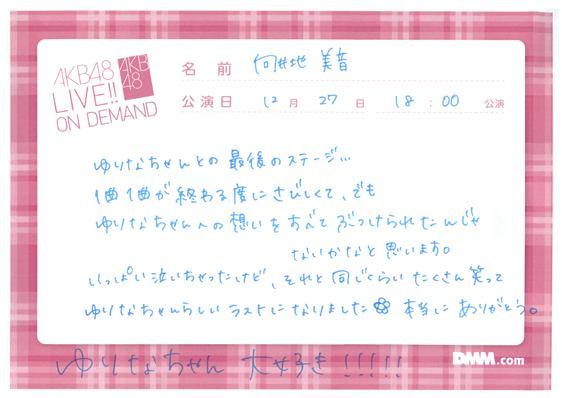 AKB48
LIVE!!
ON DEMAND
AKB
48
名 前 向井地 美音
公演日 12 月 27 日 18 : 00 公演
ゆりなちゃんとの最後のステージ…
1曲1曲が終わる度にさびしくて、でも
ゆりなちゃんへの想いをすべてぶつけられたんじゃ
ないかなと思います。
いっぱい泣いちゃったけど、それと同じくらいたくさん笑って
ゆりなちゃんらしいラストになりました 本当にありがとう。
ゆりなちゃん 大好き!!!!!
DMM.com